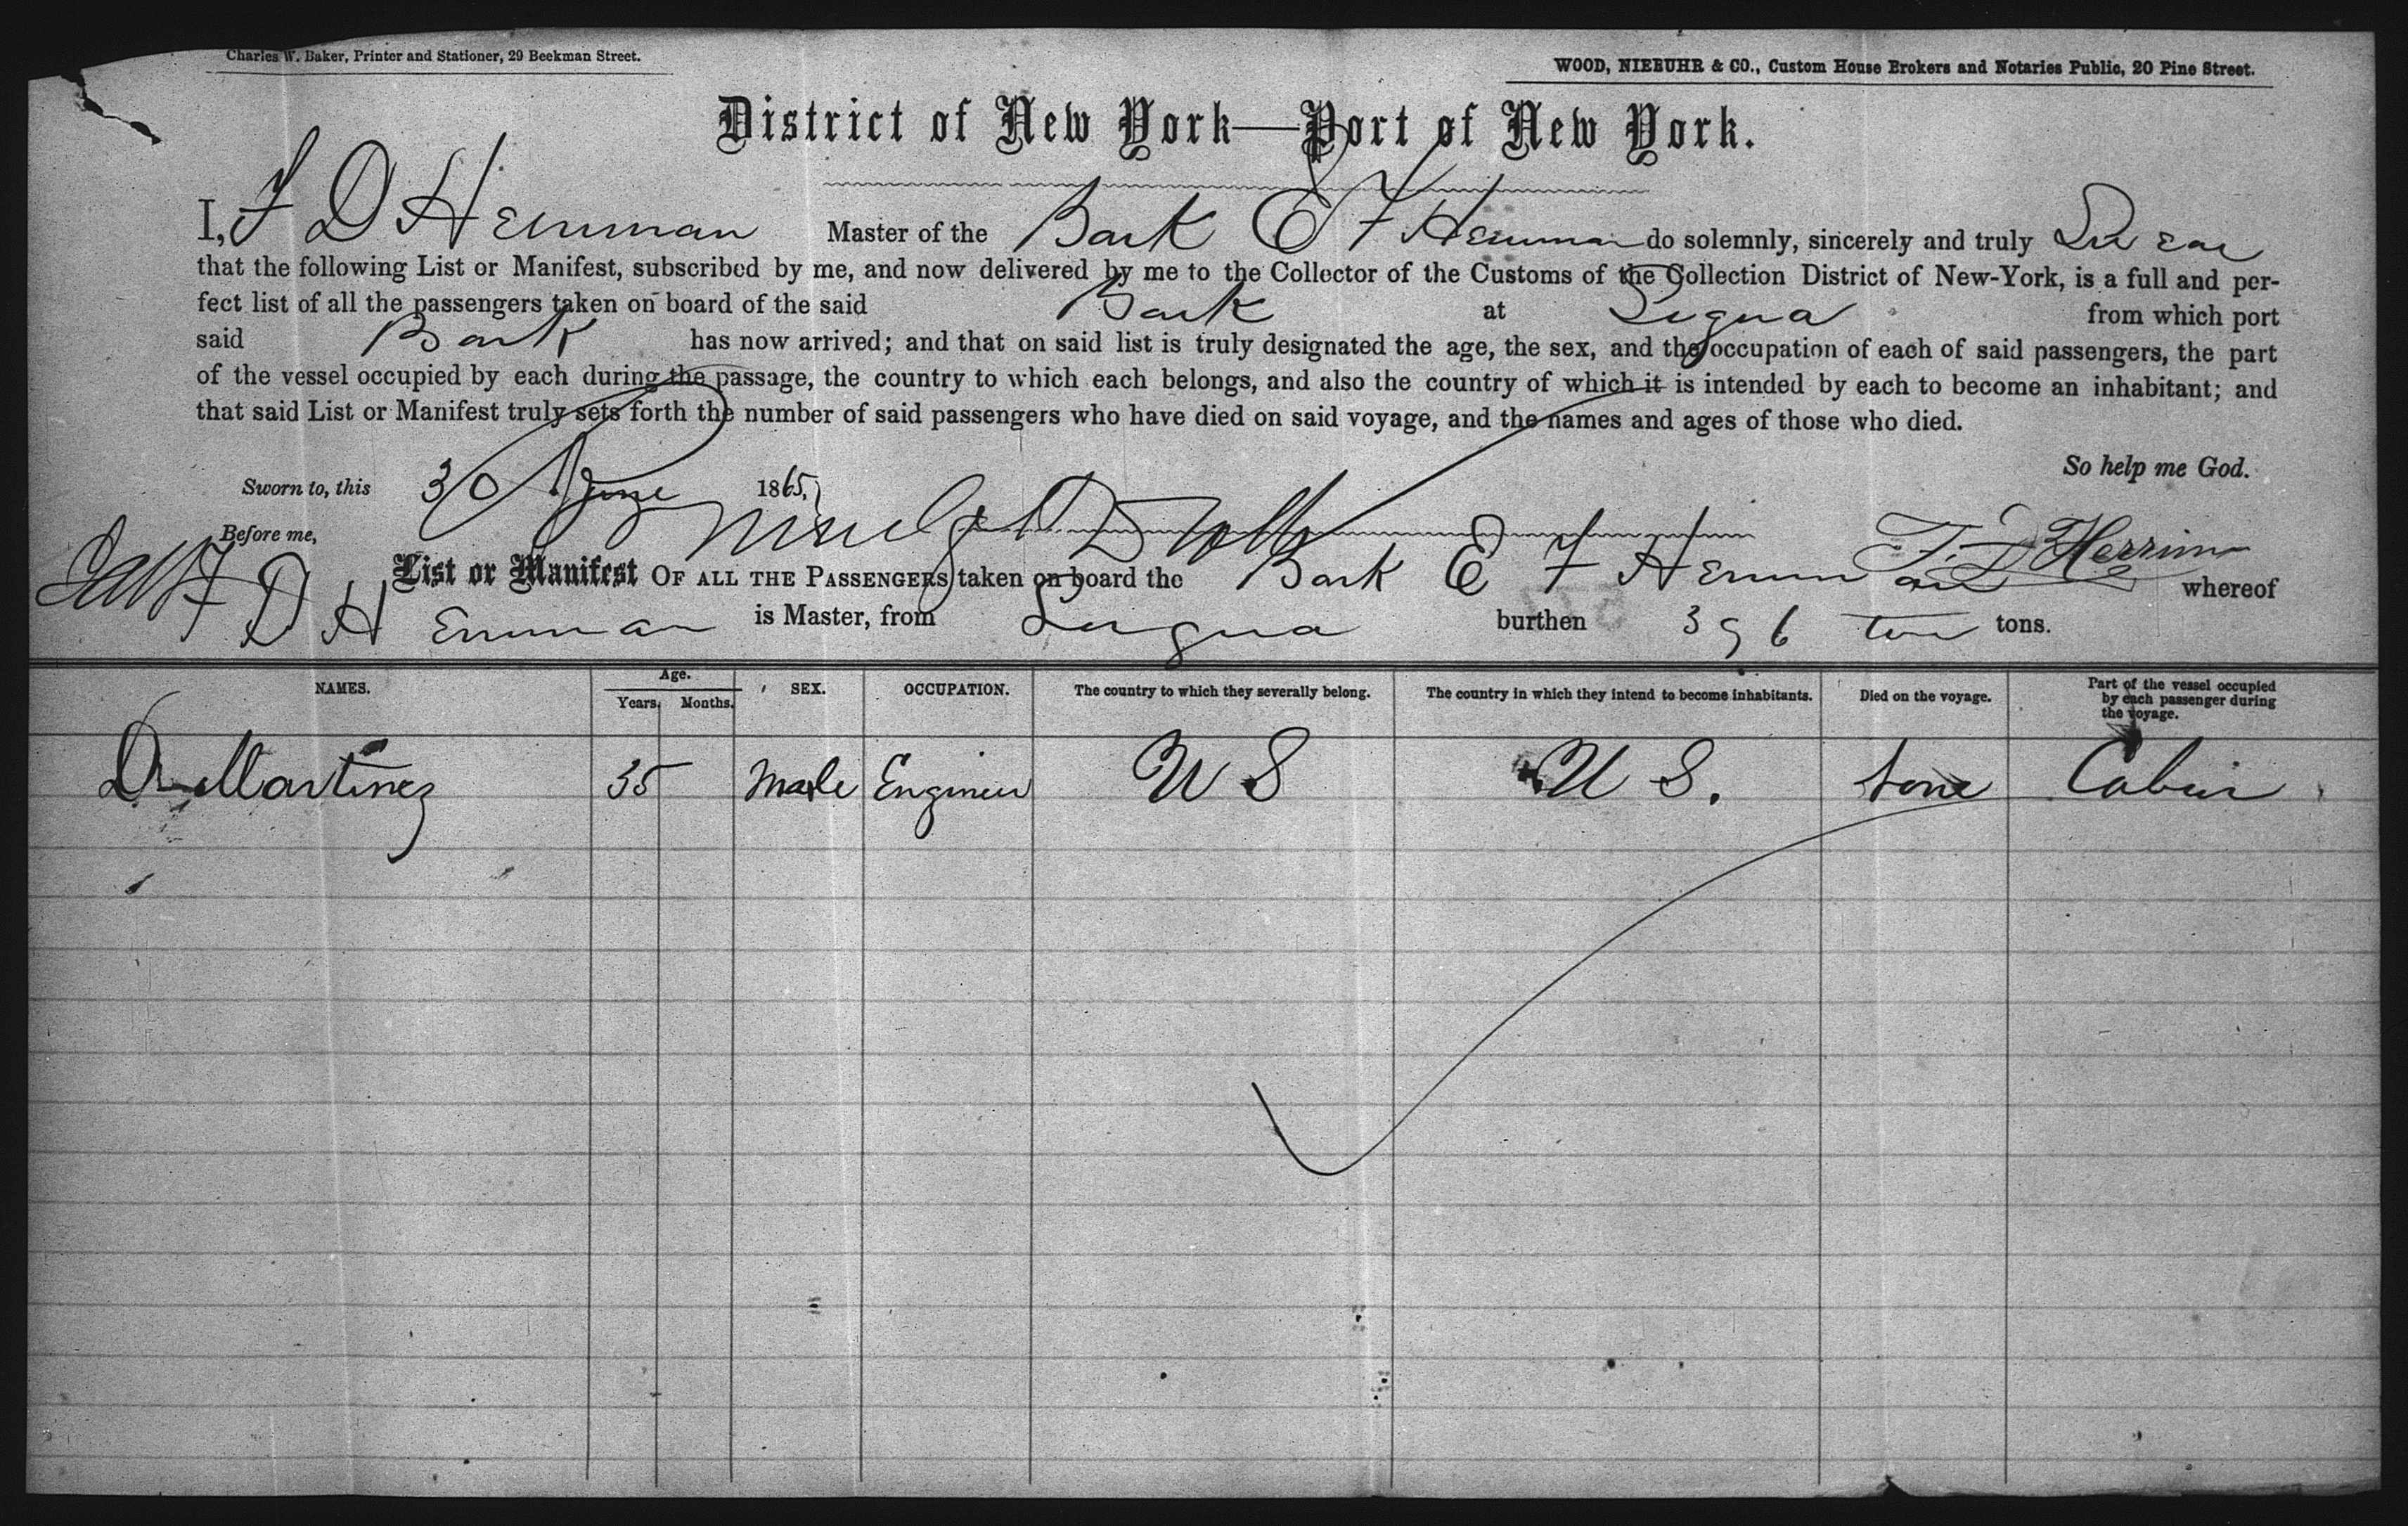 Charles W. Baker, Printer and Stationer, 29 Beekman Street.
WOOD, NIEBUHR & CO., Custom House Brokers and Notaries Public, 20 Pine Street.
District of New York—Port of New York.
I, F D Herriman Master of the Bark E F Herriman do solemnly, sincerely and truly Swear
that the following List or Manifest, subscribed by me, and now delivered by me to the Collector of the Customs of the Collection District of New-York, is a full and per-
fect list of all the passengers taken on board of the said Bark at Sagua from which port
said Bark has now arrived; and that on said list is truly designated the age, the sex, and the occupation of each of said passengers, the part
of the vessel occupied by each during the passage, the country to which each belongs, and also the country of which it is intended by each to become an inhabitant; and
that said List or Manifest truly sets forth the number of said passengers who have died on said voyage, and the names and ages of those who died.
So help me God.
Sworn to, this 30 June 1865,
Before me,
F. D Herriman
List or Manifest OF ALL THE PASSENGERS taken on board the Bark E F Herriman whereof
F D Herriman is Master, from Sagua burthen 396 tons.
NAMES. Age. Years. Months. SEX. OCCUPATION. The country to which they severally belong. The country in which they intend to become inhabitants. Died on the voyage. Part of the vessel occupied by each passenger during the voyage.
Martinez 35 Male Engineer U S U S. None Cabin